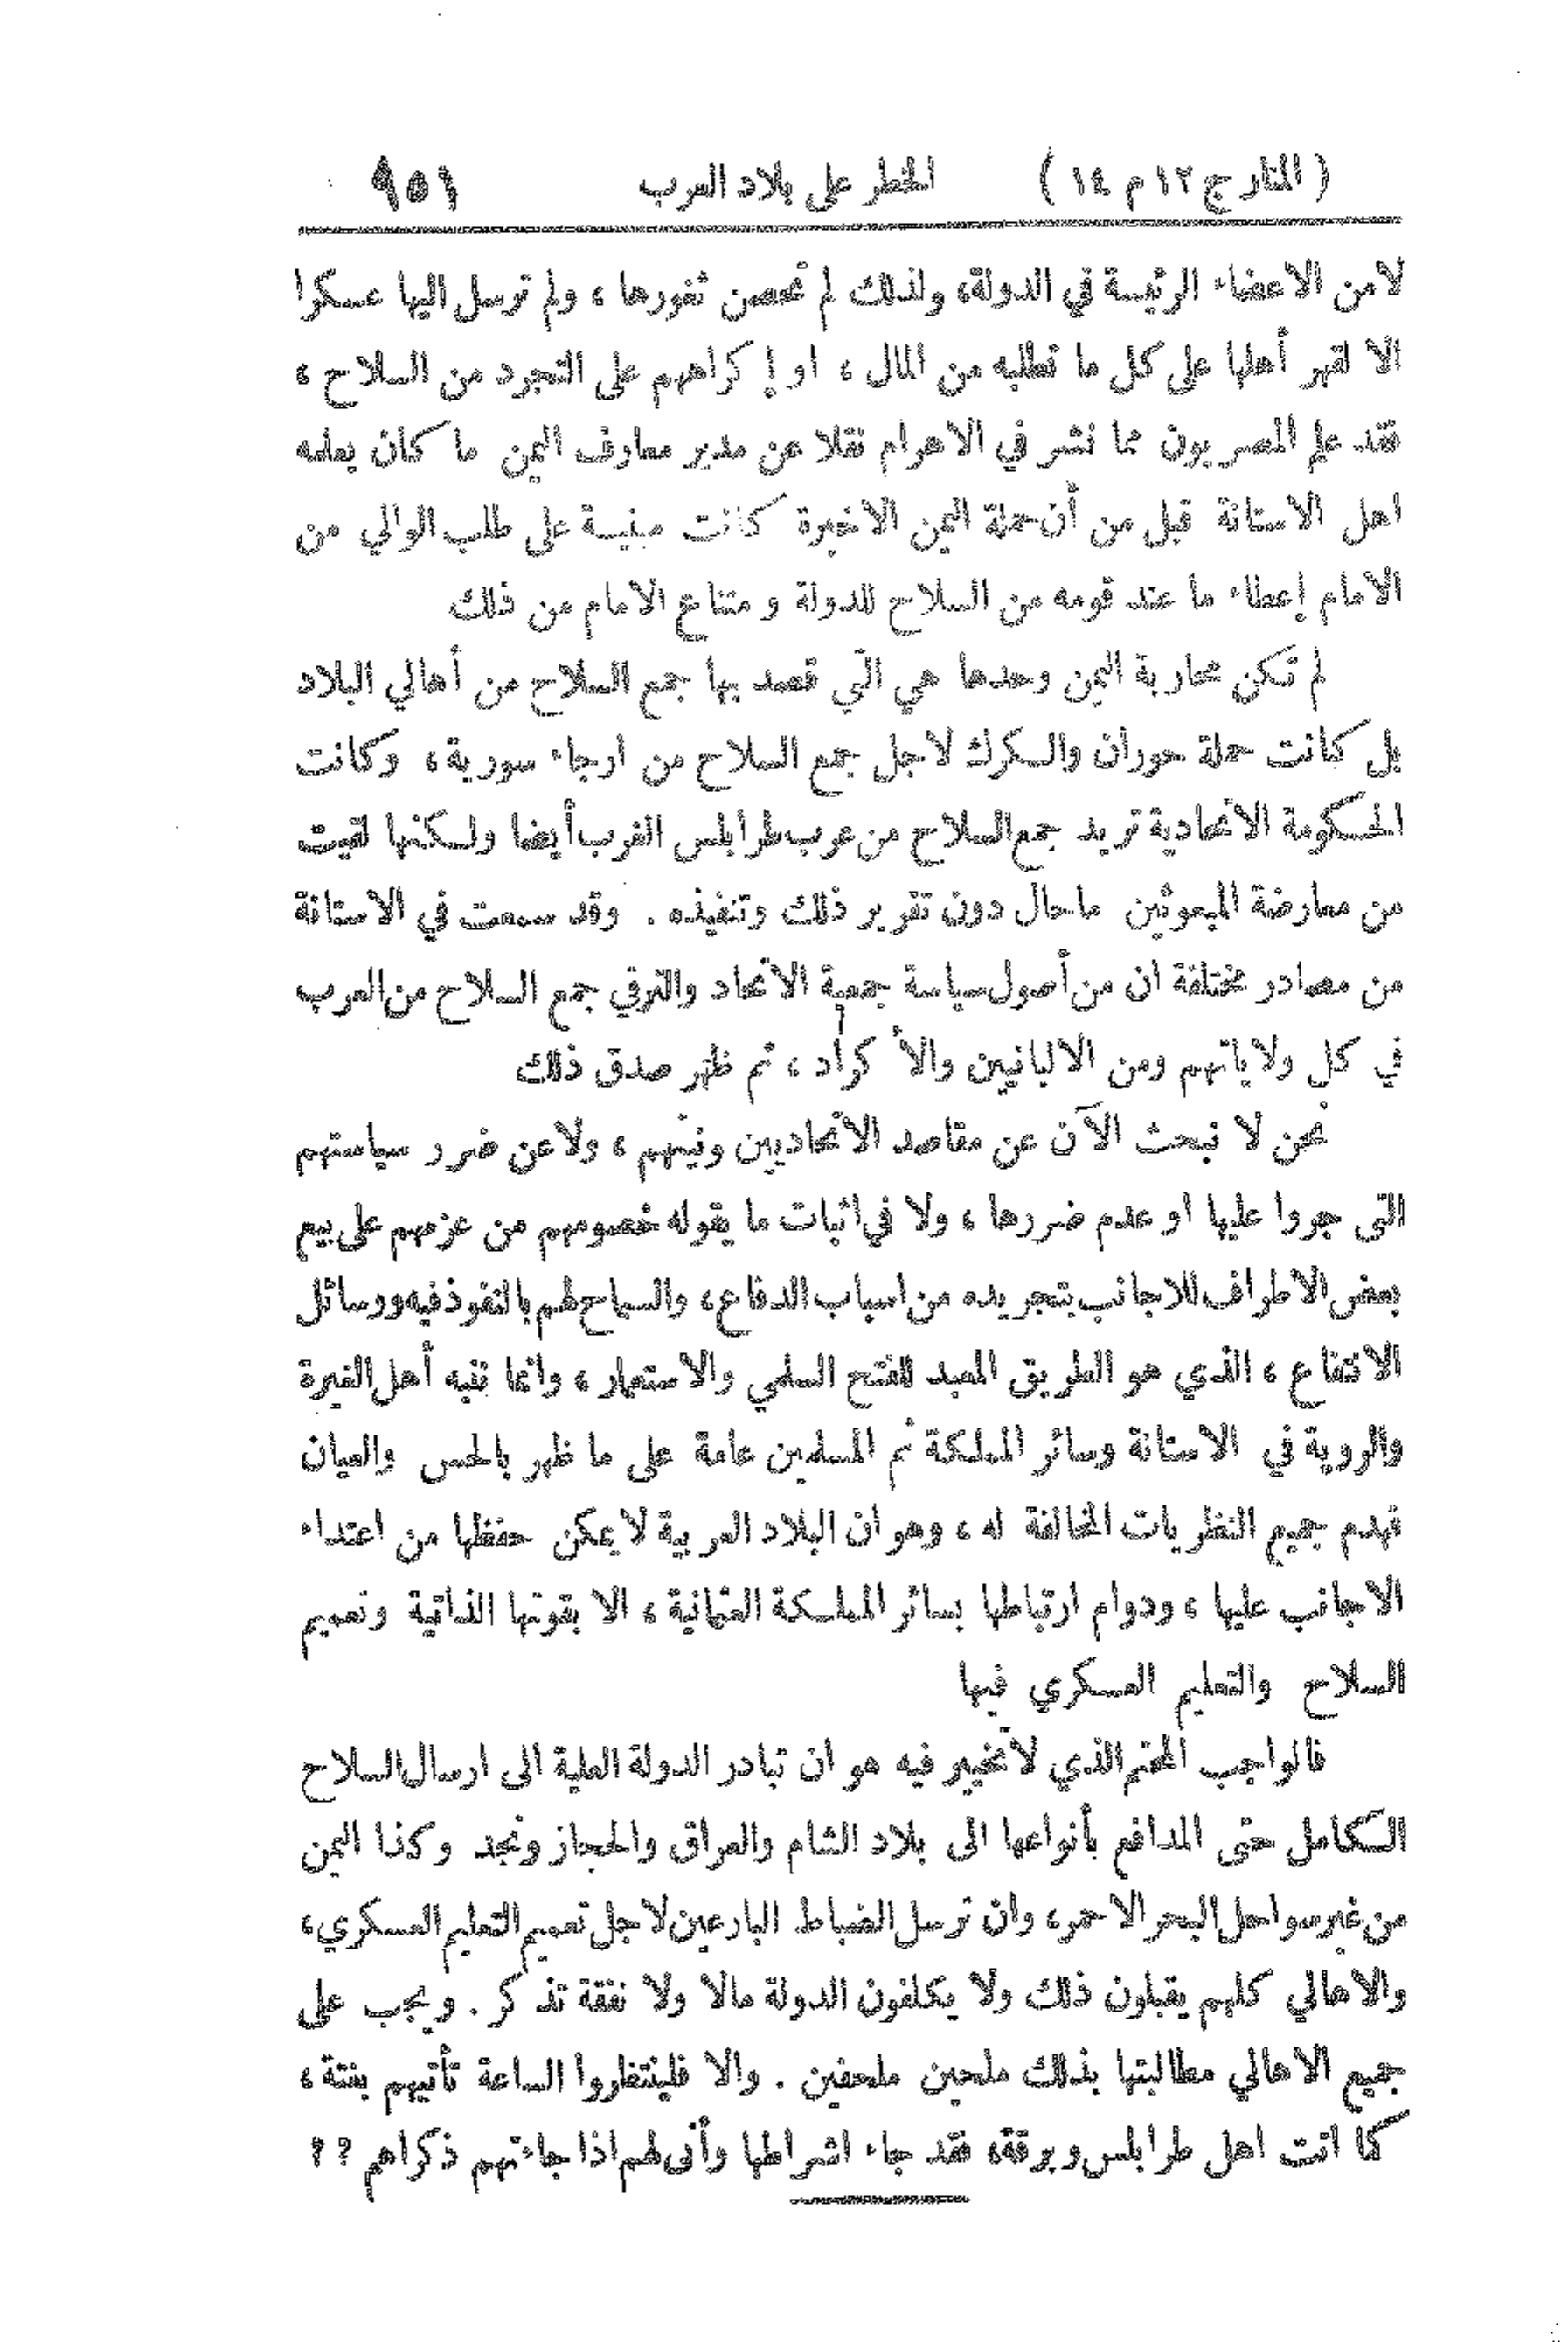 ( المنار ج ١٢ م ١٤ ) الخطر على بلاد العرب ٩٥١
لا من الاعضاء الرئيسة في الدولة، ولذلك لم تحصن ثغورها ، ولم ترسل اليها عسكرا
الا لقهر أهلها على كل ما تطلبه من المال ، او إكراههم على التجرد من السلاح ،
فقد علم المصريون مما نشر في الاهرام نقلا عن مدير معارف اليمن ما كان يعلمه
اهل الاستانة قبل من أن حملة اليمن الاخيرة كانت مبنية على طلب الوالي من
الامام إعطاء ما عند قومه من السلاح للدولة و متناع الامام من ذلك
لم تكن محاربة اليمن وحدها هي التي قصد بها جمع السلاح من أهالي البلاد
بل كانت حملة حوران والكرك لاجل جمع السلاح من ارجاء سورية ، وكانت
الحكومة الاتحادية تريد جمع السلاح من عرب طرابلس الغرب أيضا ولكنها لقيت
من معارضة المبعوثين ما حال دون تقرير ذلك وتنفيذه . وقد سمعت في الاستانة
من مصادر مختلفة ان من أصول سياسة جمعية الاتحاد والترقي جمع السلاح من العرب
في كل ولاياتهم ومن الالبانيين والأكراد ، ثم ظهر صدق ذلك
نحن لا نبحث الآن عن مقاصد الاتحاديين ونيتهم ، ولا عن ضرر سياستهم
التي جروا عليها او عدم ضررها ، ولا في اثبات ما يقوله خصومهم من عزمهم على بيع
بعض الاطراف للاجانب بتجريده من اسباب الدفاع ، والسماح لهم بالنفوذ فيه ووسائل
الانتفاع ، الذي هو الطريق المعبد للفتح السلمي والاستعمار ، وانما ننبه أهل الغيرة
والروية في الاستانة وسائر المملكة ثم المسلمين عامة على ما ظهر بالحس والعيان
فهدم جميع النظريات المخالفة له ، وهو ان البلاد العربية لا يمكن حفظها من اعتداء
الاجانب عليها ، ودوام ارتباطها بسائر المملكة العثمانية ، الا بقوتها الذاتية وتعميم
السلاح والتعليم العسكري فيها
فالواجب المحتم الذي لا تخيير فيه هو ان تبادر الدولة العلية الى ارسال السلاح
الكامل حتى المدافع بأنواعها الى بلاد الشام والعراق والحجاز ونجد وكذا اليمن
من غير سواحل البحر الاحمر ، وان ترسل الضباط البارعين لاجل تعميم التعليم العسكري ،
والاهالي كلهم يقبلون ذلك ولا يكلفون الدولة مالا ولا نفقة تذكر . ويجب على
جميع الاهالي مطالبتها بذلك ملحين ملحفين . والا فلينتظروا الساعة تأتيهم بغتة ،
كما اتت اهل طرابلس وبرقة ، فقد جاء اشراطها وأنى لهم اذا جاءتهم ذكراهم ؟؟